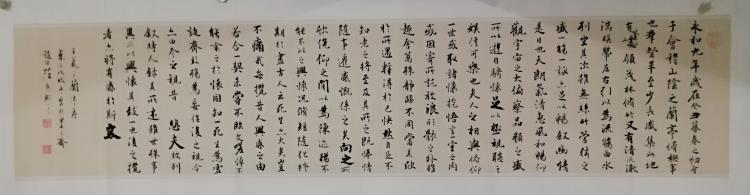 永和九年歲在癸丑暮春之初會
于會稽山陰之蘭亭脩禊事
也群賢畢至少長咸集此地
有崇山峻領茂林脩竹又有清流激
湍暎帶左右引以為流觴曲水
列坐其次雖無絲竹管弦之
盛一觴一詠亦足以暢敘幽情
是日也天朗氣清惠風和暢仰
觀宇宙之大俯察品類之盛
所以遊目騁懷足以極視聽之
娛信可樂也夫人之相與俯仰
一世或取諸懷抱悟言一室之內
或因寄所託放浪形骸之外雖
趣舍萬殊靜躁不同當其欣
於所遇暫得於己快然自足不
知老之將至及其所之既惓情
隨事遷感慨係之矣向之所
欣俛仰之間以為陳迹猶不
能不以之興懷況脩短隨化終
期於盡古人云死生亦大矣豈
不痛哉每攬昔人興感之由
若合一契未嘗不臨文嗟悼不
能喻之於懷固知一死生為虛
誕齊彭殤為妄作後之視今
亦由今之視昔悲夫故列
敘時人錄其所述雖世殊事
異所以興懷其致一也後之攬
者亦將有感於斯文
王羲之蘭亭序